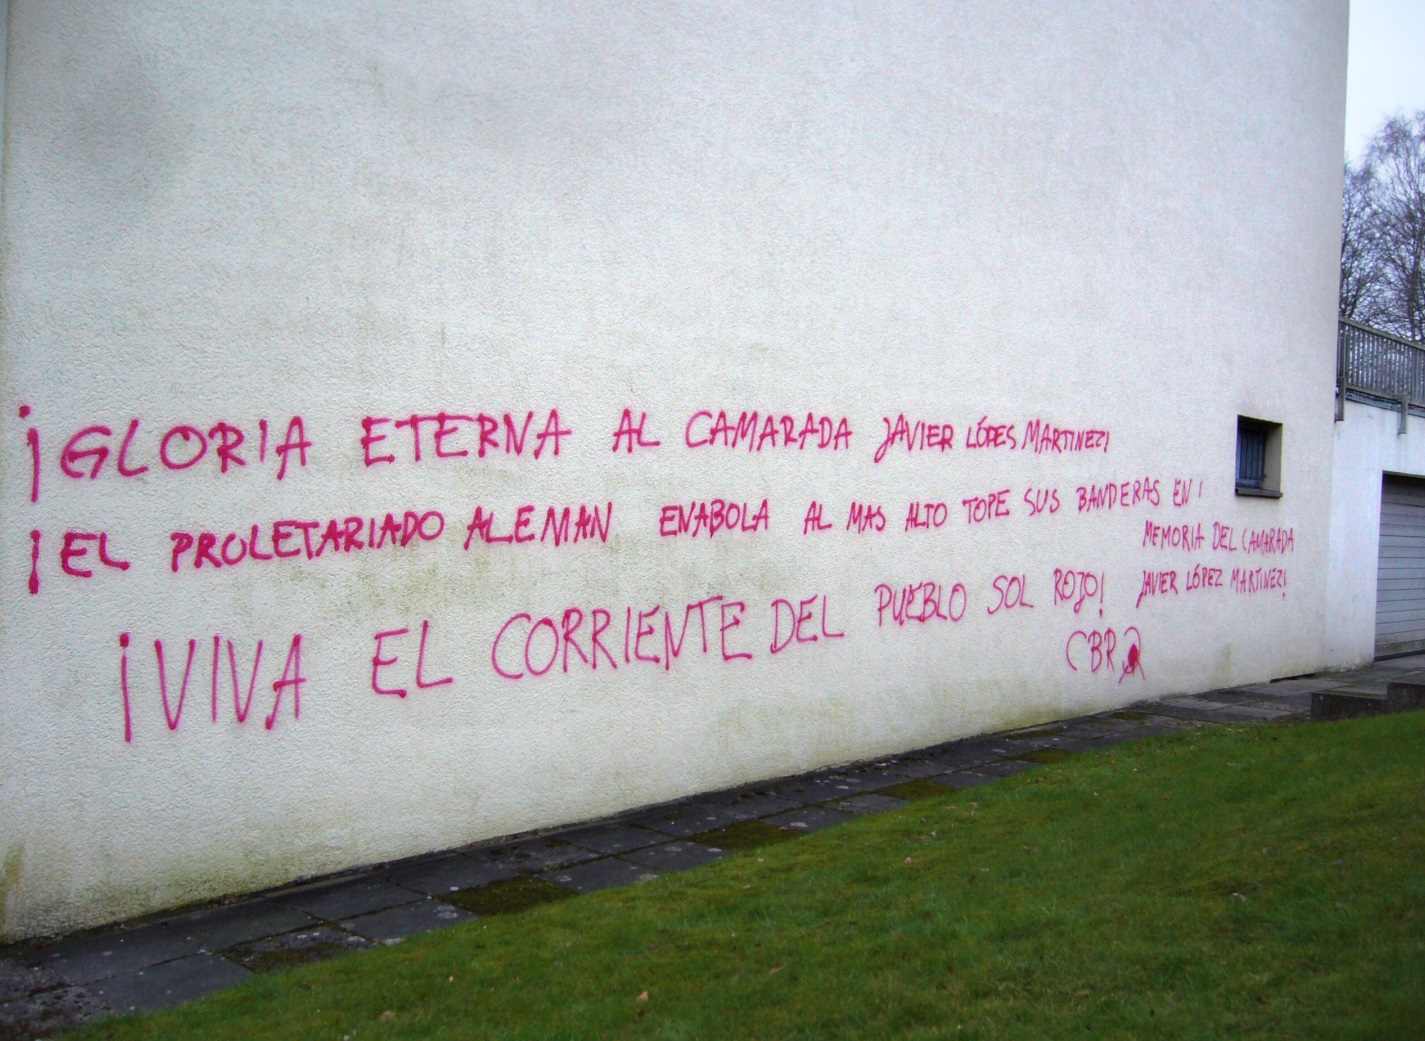 ¡GLORIA ETERNA AL CAMARADA JAVIER LÓPES MARTINEZ!
¡EL PROLETARIADO ALEMAN ENABOLA AL MAS ALTO TOPE SUS BANDERAS EN
MEMORIA DEL CAMARADA
JAVIER LÓPEZ MARTINEZ!
¡VIVA EL CORRIENTE DEL PUEBLO SOL ROJO!
CBR